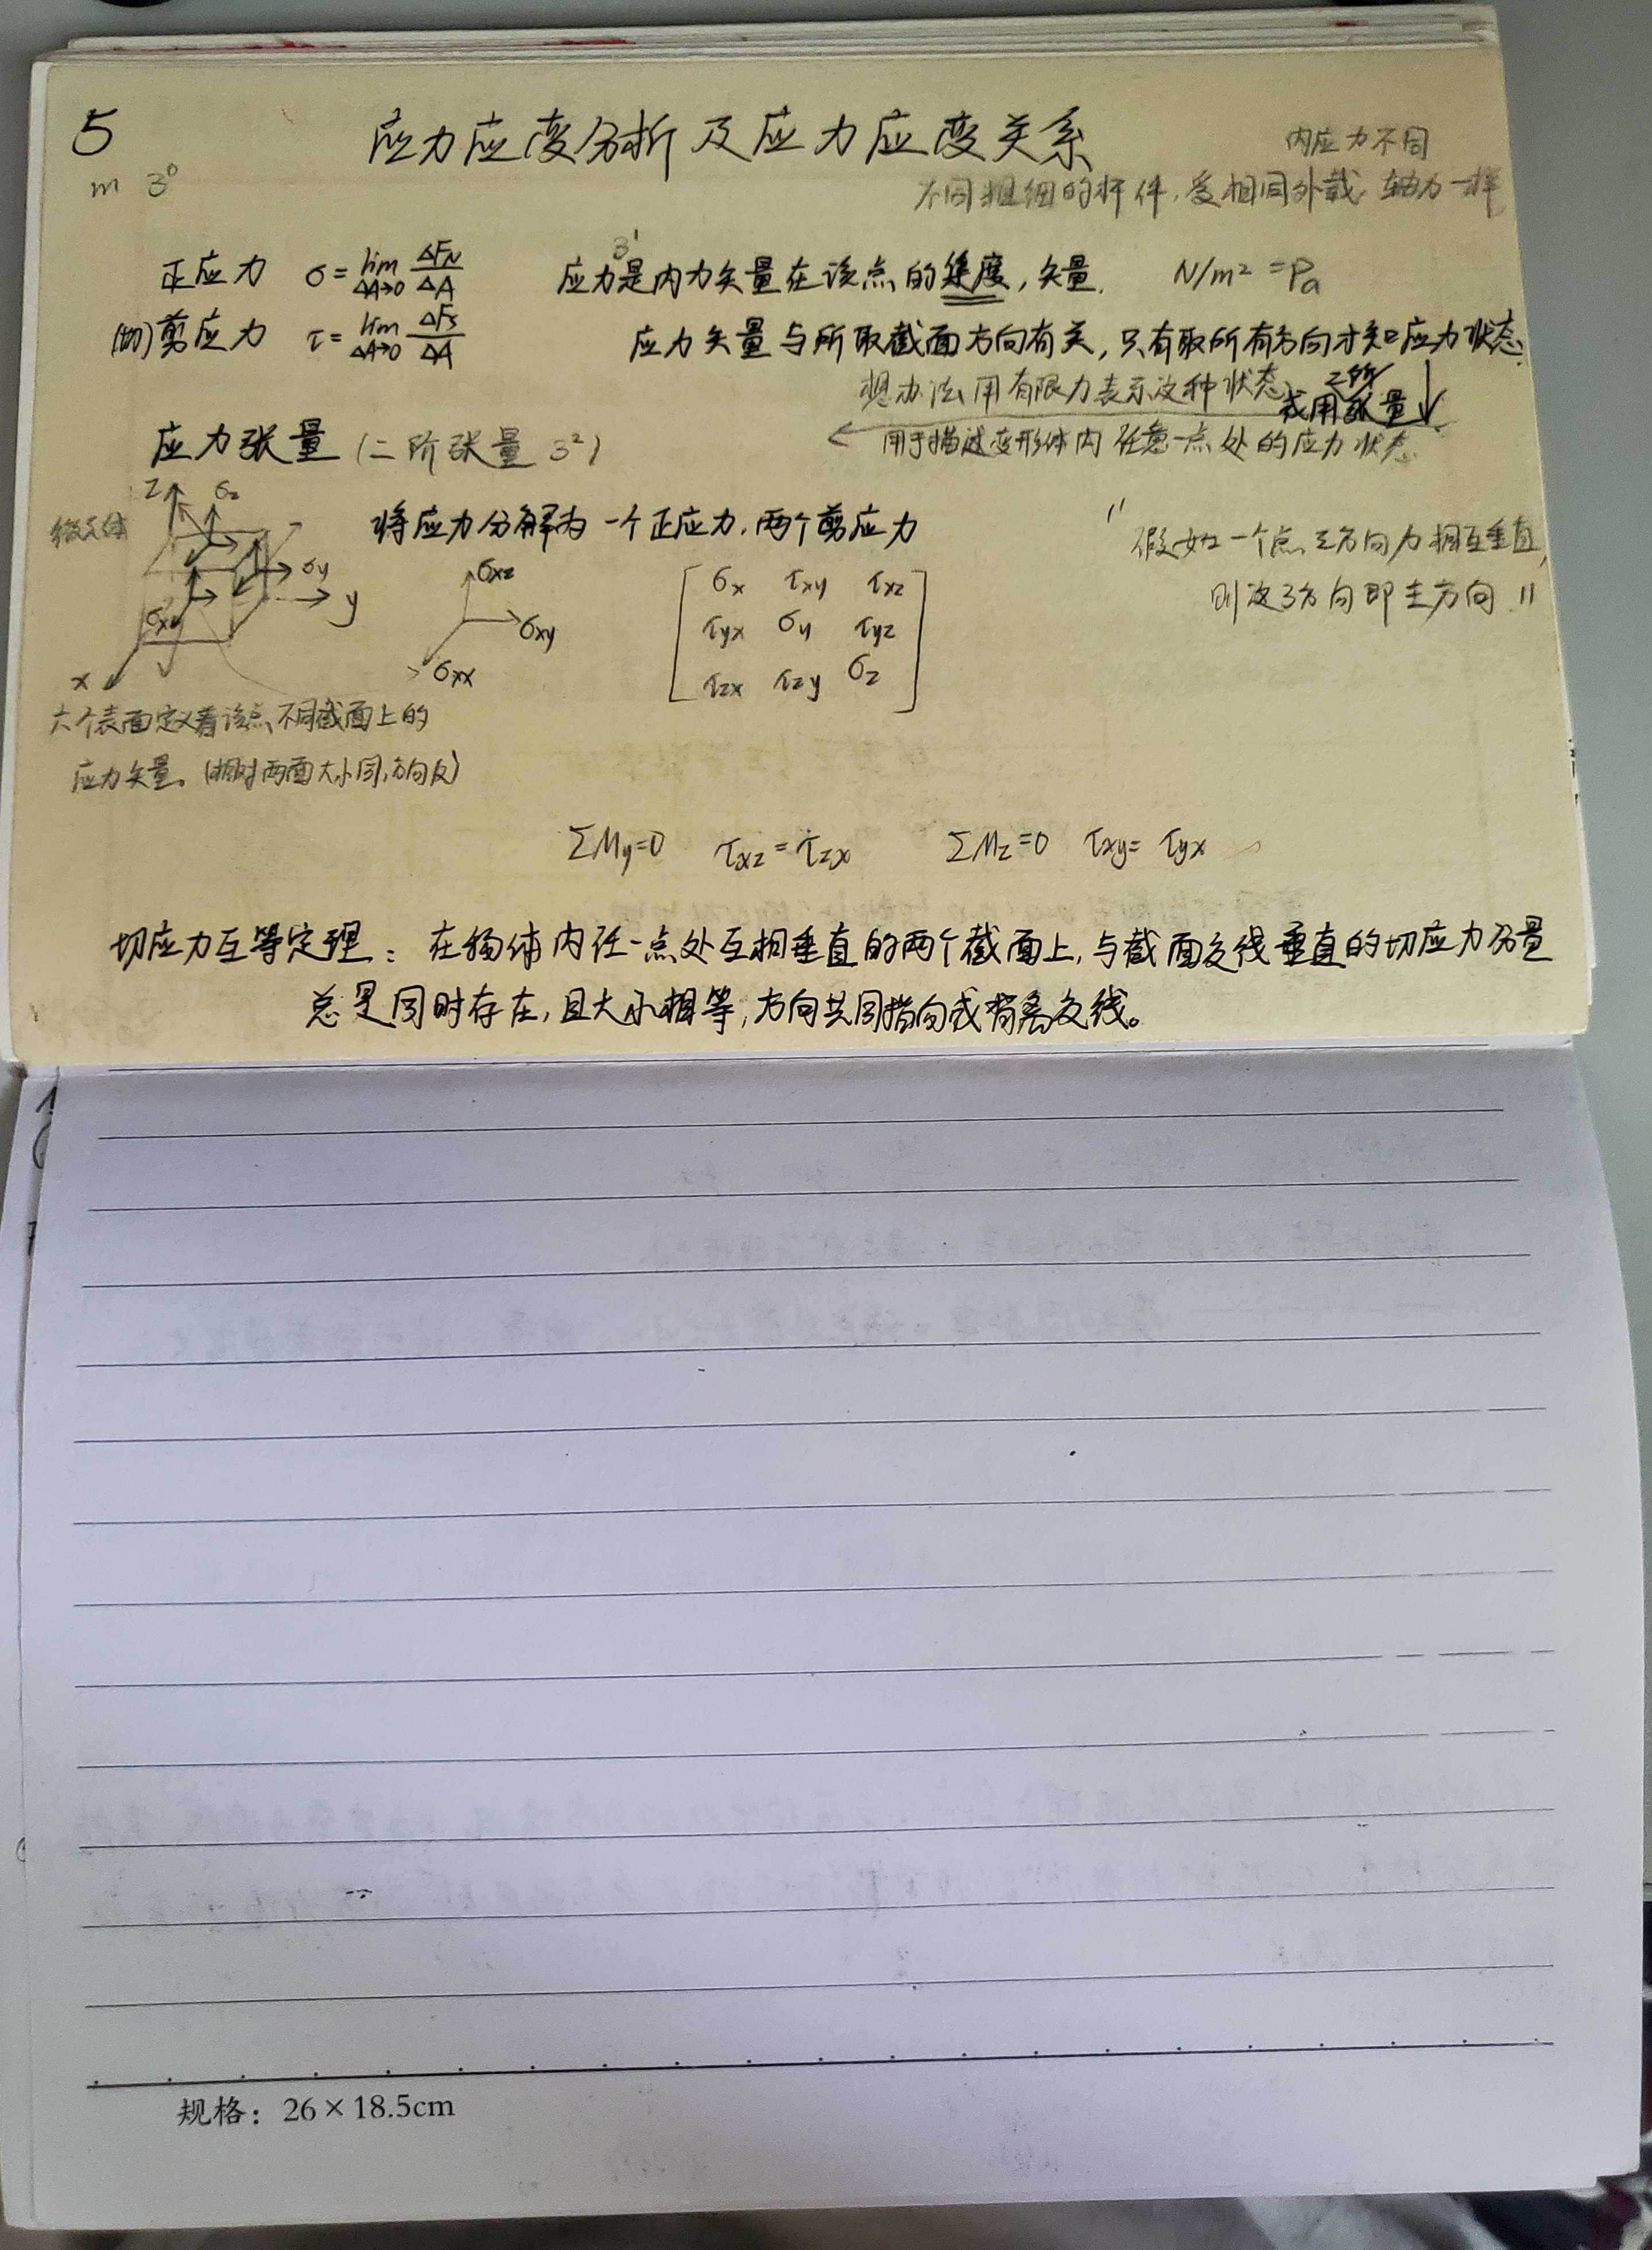 5
应力应变分析及应力应变关系
内应力不同
m 3⁰
不同粗细的杆件,受相同外载,轴力一样
正应力 σ=lim ΔA→0 ΔFN/ΔA
3¹
应力是内力矢量在该点的集度,矢量. N/m²=Pa
(切)剪应力 τ=lim ΔA→0 ΔFs/ΔA
应力矢量与所取截面方向有关,只有取所有方向才知应力状态.
想办法用有限力表示这种状态
二阶
或用张量
用于描述变形体内任意一点处的应力状态
应力张量(二阶张量 3²)
z σz
微元体
σy y
σx
x
将应力分解为一个正应力.两个剪应力
σxz
σxy
σxx
σx τxy τxz
τyx σy τyz
τzx τzy σz
"假如一个点,三方向力相互垂直,
则这3方向即主方向"
六个表面定义着该点不同截面上的
应力矢量。(相对两面大小同,方向反)
ΣMy=0 τxz=τzx ΣMz=0 τxy=τyx
切应力互等定理:在物体内任一点处互相垂直的两个截面上,与截面交线垂直的切应力分量
总是同时存在,且大小相等,方向共同指向或背离交线。
规格:26×18.5cm